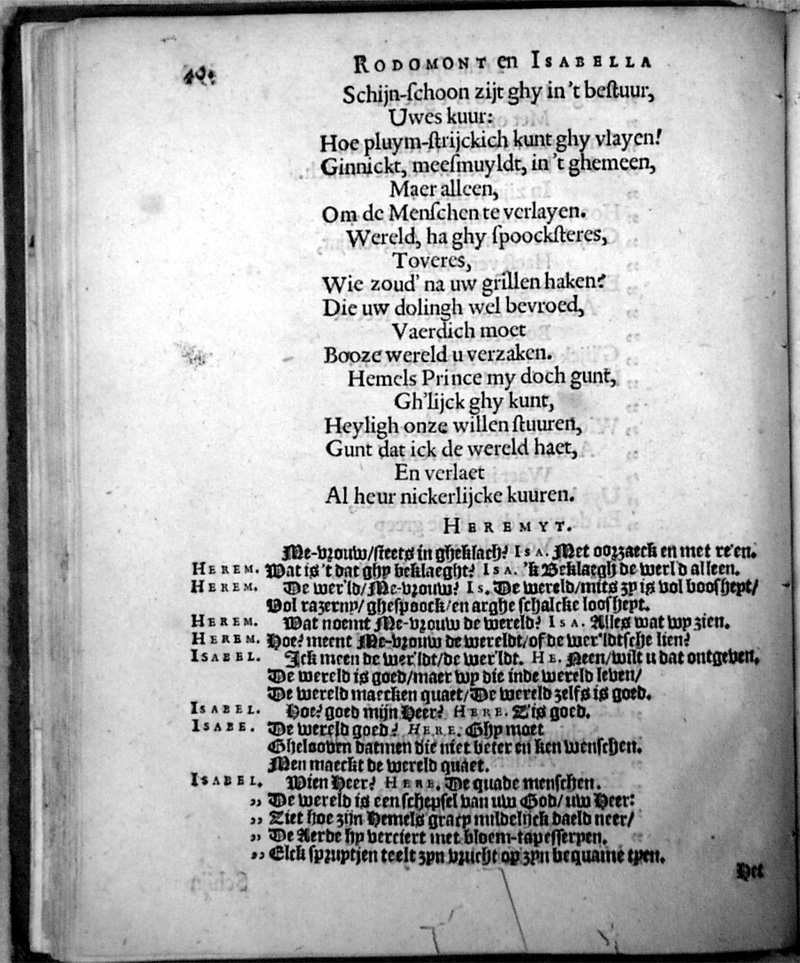 RODOMONT en ISABELLA
Schijn-ſchoon zijt ghy in 't beſtuur,
Uwes kuur:
Hoe pluym-ſtrijckich kunt ghy vlayen!
Ginnickt, meeſmuyldt, in 't ghemeen,
Maer alleen,
Om de Menſchen te verlayen.
Wereld, ha ghy ſpoockſteres,
Toveres,
Wie zoud' na uw grillen haken?
Die uw dolingh wel bevroed,
Vaerdich moet
Booze wereld u verzaken.
Hemels Prince my doch gunt,
Gh'lijck ghy kunt,
Heyligh onze willen ſtuuren,
Gunt dat ick de wereld haet,
En verlaet
Al heur nickerlijcke kuuren.
HEREMYT.
Me-vrouw/ſteets in gheklach? ISA. Met oorzaeck en met re'en.
HEREM. Wat is 't dat ghy beklaeght? ISA. 'k Beklaegh de werl'd alleen.
HEREM. De wer'ld/Me-vrouw? IS. De wereld/mits zy is vol booſheyt/
Vol razerny/gheſpoock/en arghe ſchalcke looſheyt.
HEREM. Wat noemt Me-vrouw de wereld? ISA. Alles wat wy zien.
HEREM. Hoe? meent Me-vrouw de wereldt/of de wer'ldtſche lien?
ISABEL. Ick meen de wer'ldt/de wer'ldt. HE. Neen/wilt u dat ontgeven,
De wereld is goed/maer wy die inde wereld leven/
De wereld maecken quaet/De wereld zelfs is goed.
ISABEL. Hoe? goed mijn Heer? HERE. 't Is goed.
ISABE. De wereld goed? HERE. Ghy moet
Ghelooven datmen die niet beter en ken wenſchen.
Men maeckt de wereld quaet.
ISABEL. Wien Heer? HERE. De quade menſchen.
„ De wereld is een ſchepſel van uw God/uw Heer:
„ Ziet hoe zijn Hemels graep mildelijck daeld neer/
„ De Aerde hy verciert met bloem-tapeſſeryen.
„ Elck ſpruytjen teelt zyn vrucht op zyn bequame tyen.
Het